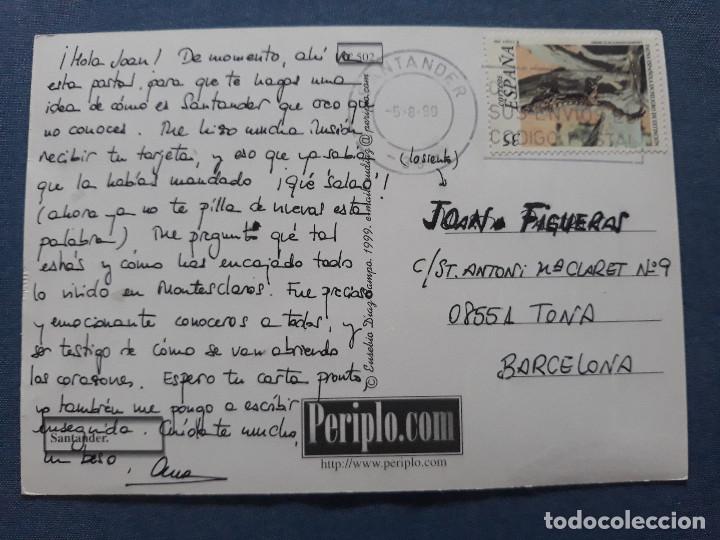 ¡Hola Joan! De momento, ahí va
esta postal, para que te hagas una
idea de cómo es Santander que creo que
no conoces. Me hizo mucha ilusión
recibir tu tarjeta, y eso que ya sabía
que la habías mandado ¡Qué "salao"!
(ahora ya no te pilla de nuevas esta
palabra) Me pregunto qué tal
estás y cómo has encajado todo
lo vivido en Montesclaros. Fue precioso
y emocionante conoceros a todos, y
ser testigo de cómo se van abriendo
los corazones. Espero tu carta pronto
yo también me pongo a escribir
enseguida. Cuídate mucho,
un beso, Ana
Santander.
502
© Eusebio Díaz Campo. 1999. e.mail: eudiaz@periplo.com
Periplo.com
http://www.periplo.com
SANTANDER
5-8-99
SUS ENVIOS
CODIGO POSTAL
ESPAÑA
correos
35
(lo siento)
JOAN FIGUERAS
C/ST. ANTONI Mª CLARET Nº 9
08551 TONA
BARCELONA
todocoleccion
todocoleccion.net